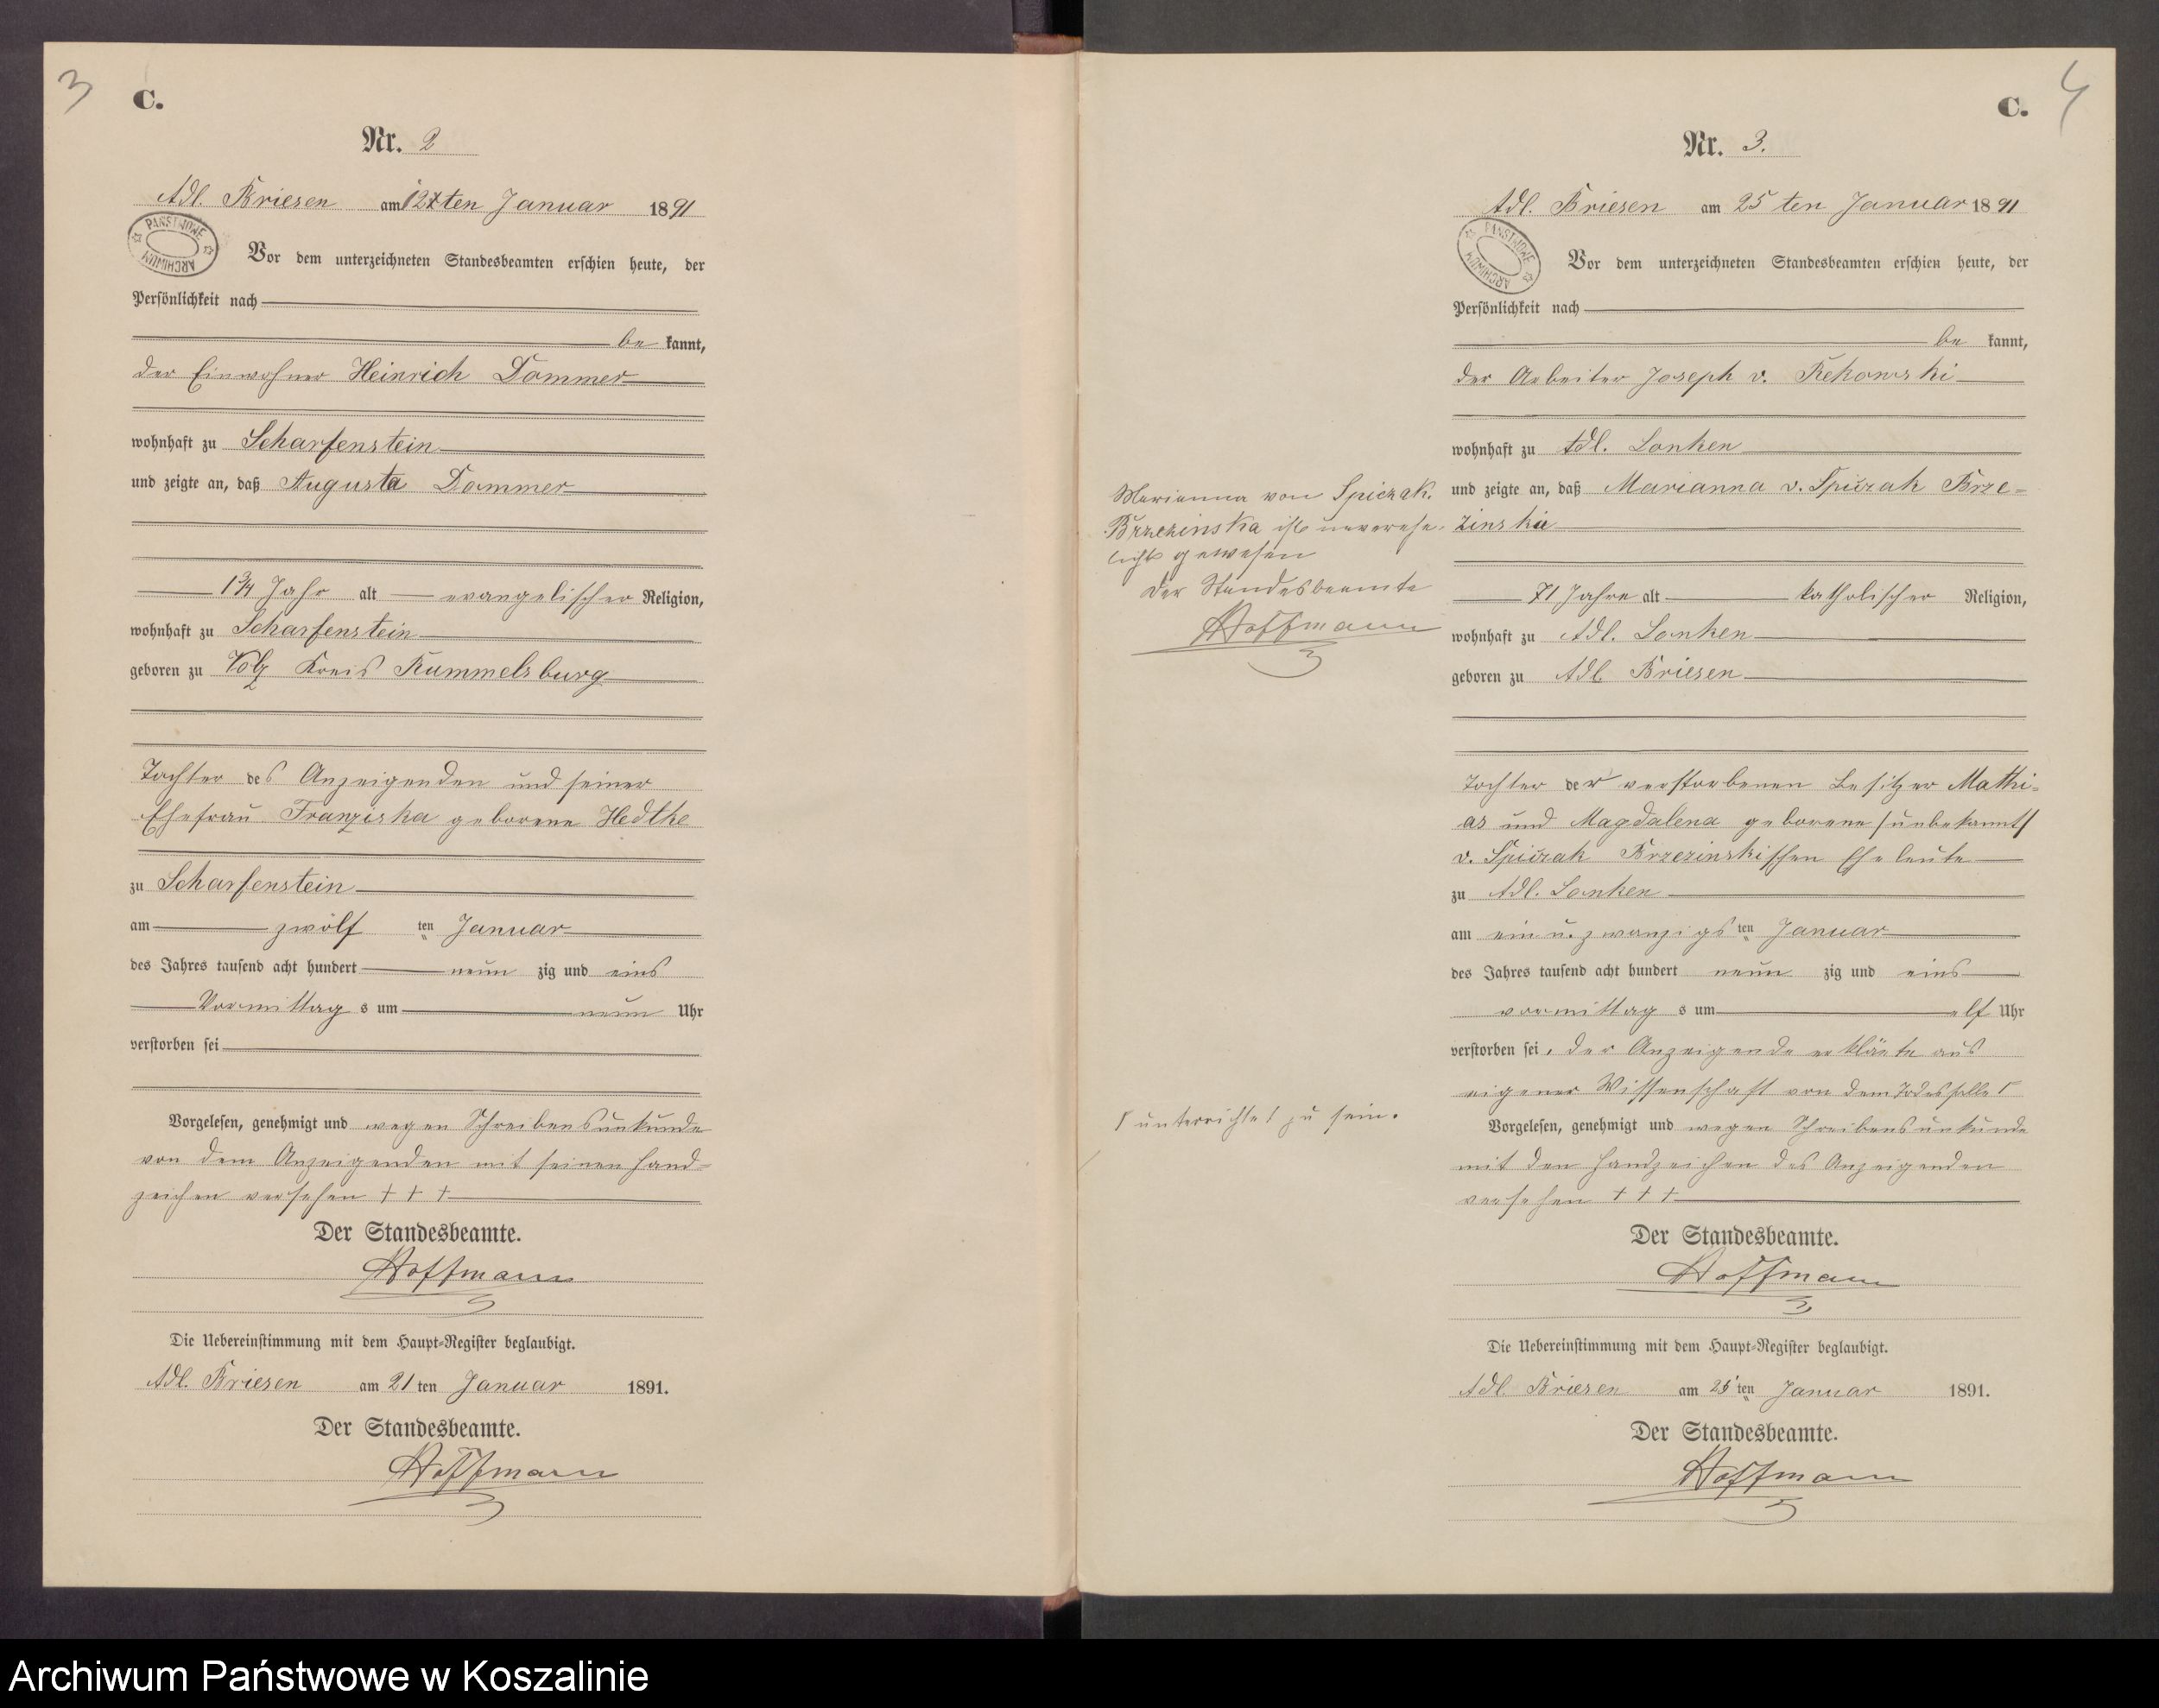 3
C.
Nr. 2
Adl. Briesen am 12ten Januar 1891
PAŃSTWOWE ARCHIWUM
Vor dem unterzeichneten Standesbeamten erschien heute, der
Persönlichkeit nach
be kannt,
der Einwohner Heinrich Dommer
wohnhaft zu Scharfenstein
und zeigte an, daß Augusta Dommer
1 3/4 Jahr alt evangelischer Religion,
wohnhaft zu Scharfenstein
geboren zu Volz Kreis Rummelsburg
Tochter des Anzeigenden und seiner
Ehefrau Franziska geborene Hedtke
zu Scharfenstein
am zwölf ten Januar
des Jahres tausend acht hundert neun zig und eins
Vormittag s um neun Uhr
verstorben sei
Vorgelesen, genehmigt und wegen Schreibensunkunde
von dem Anzeigenden mit seinen Hand-
zeichen versehen + + +
Der Standesbeamte.
Hoffmann
Die Uebereinstimmung mit dem Haupt-Register beglaubigt.
Adl. Briesen am 21 ten Januar 1891.
Der Standesbeamte.
Hoffmann
4
C.
Nr. 3.
Adl. Briesen am 25 ten Januar 1891
PAŃSTWOWE ARCHIWUM
Vor dem unterzeichneten Standesbeamten erschien heute, der
Persönlichkeit nach
be kannt,
der Arbeiter Joseph v. Rekowski
wohnhaft zu Adl. Lonken
und zeigte an, daß Marianna v. Spiczak Brze-
zinska
71 Jahre alt katholischer Religion,
wohnhaft zu Adl. Lonken
geboren zu Adl. Briesen
Tochter der verstorbenen Besitzer Mathi-
as und Magdalena geborene /unbekannt/
v. Spiczak Brzezinskischen Eheleute
zu Adl. Lonken
am ein u. zwanzigs ten Januar
des Jahres tausend acht hundert neun zig und eins
vormittag s um elf Uhr
verstorben sei, der Anzeigende erklärte aus
eigener Wissenschaft von dem Todesfalle Γ
Vorgelesen, genehmigt und wegen Schreibensunkunde
mit den Handzeichen des Anzeigenden
versehen + + +
Der Standesbeamte.
Hoffmann
Die Uebereinstimmung mit dem Haupt-Register beglaubigt.
Adl. Briesen am 25 ten Januar 1891.
Der Standesbeamte.
Hoffmann
Marianna von Spiczak.
Brzezinska ist unverehe-
licht gewesen
Der Standesbeamte
Hoffmann
Γ unterrichtet zu sein.
Archiwum Państwowe w Koszalinie